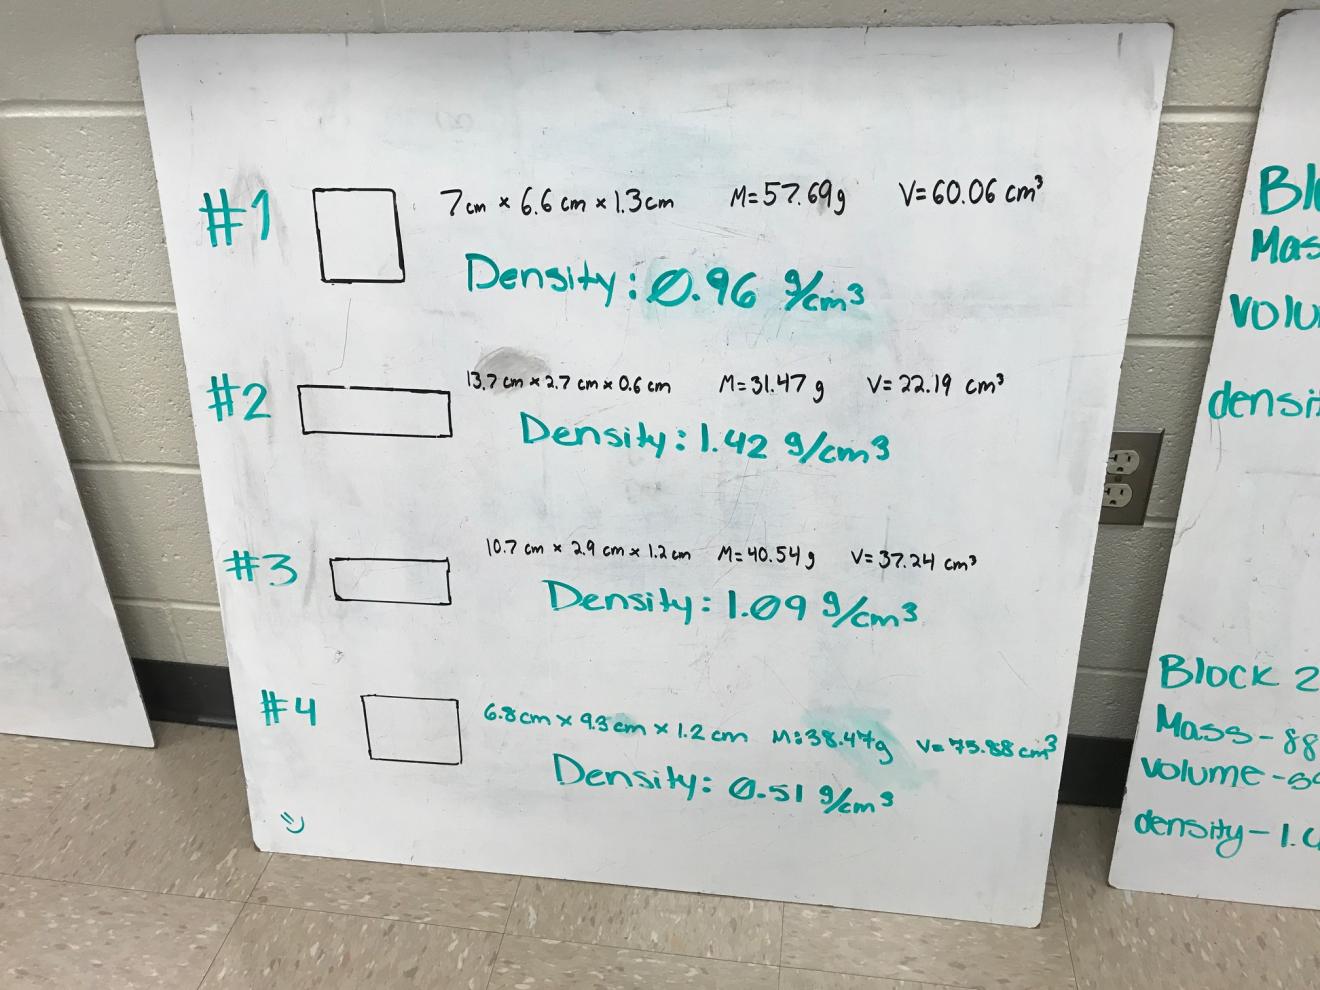 #1 7cm × 6.6 cm × 1.3cm M=57.69g V=60.06 cm³
Density: 0.96 g/cm³
#2 13.7 cm × 2.7 cm × 0.6 cm M=31.47 g V=22.19 cm³
Density: 1.42 g/cm³
#3 10.7 cm × 2.9 cm × 1.2 cm M=40.54g V=37.24 cm³
Density: 1.09 g/cm³
#4 6.8cm × 9.3cm × 1.2 cm M:38.47g V=75.88cm³
Density: 0.51 g/cm³
Block 2
Mass - 88
Volume -
density - 1.